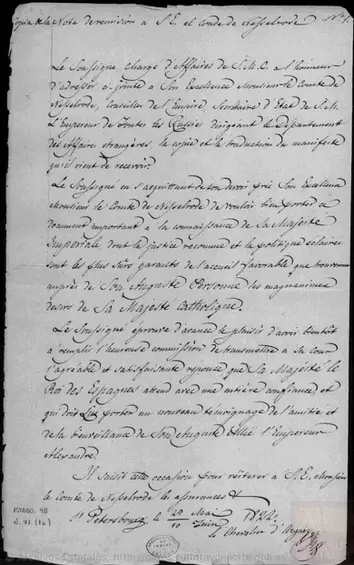 Copia de la Nota de remision a S.E. el conde de Nesselrode Nº 1.
Le Soussigné Chargé d'Affaires de S.M.C. a l'honneur
d'adresser ci-jointe à Son Excellence Monsieur le Comte de
Nesselrode, Conseiller de l'Empire, Secrétaire d'Etat de S.M.
L'Empereur de Toutes les Russies dirigeant le Département
des Affaires étrangères, la copie et la traduction du manifeste
qu'il vient de recevoir.
Le Soussigné en s'acquittant de son devoir, prie Son Excellence
Monsieur le Comte de Nesselrode de vouloir bien porter ce
document important à la connaissance de Sa Majesté
Impériale dont la justice reconnue et la politique éclairée
sont les plus sûrs garants de l'accueil favorable que trouveront
auprès de Son Auguste Personne les magnanimes
désirs de Sa Majesté Catholique.
Le Soussigné éprouve d'avance le plaisir d'avoir bientôt
à remplir l'heureuse commission de transmettre à Sa Cour
l'agréable et satisfaisante réponse que Sa Majesté le
Roi des Espagnes attend avec une entière confiance, et
qui doit Lui porter un nouveau témoignage de l'amitié et
de la bienveillance de Son Auguste Allié l'Empereur
Alexandre.
Il saisit cette occasion pour réitérer à S.E. Monsieur
le Comte de Nesselrode les assurances &
St Petersbourg, le 29 Mai / 10 Juin 1822.
le Chevalier d'Argaiz
ESTADO. 90